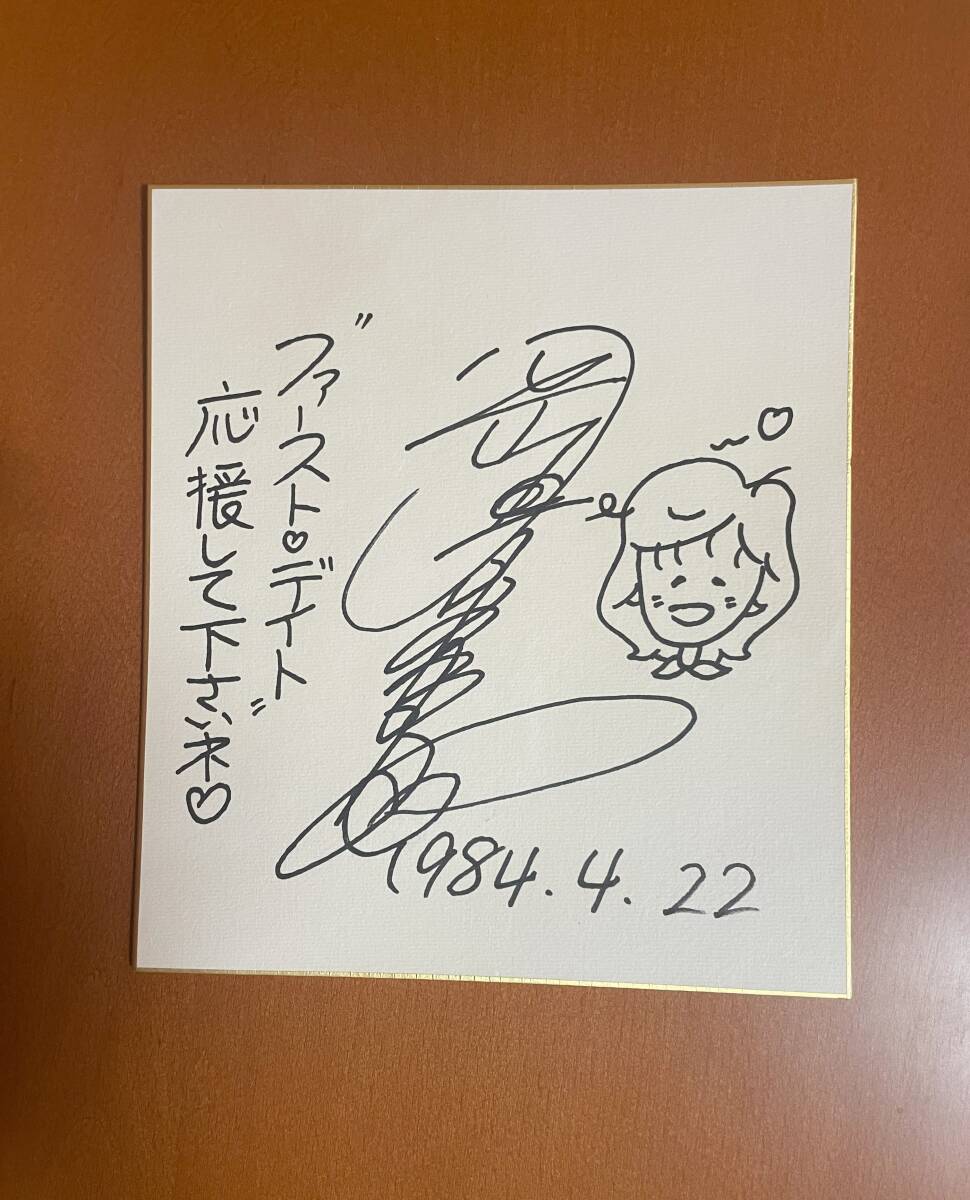 "ファースト♡デイト"
応援して下さいネ♡
1984.4.22